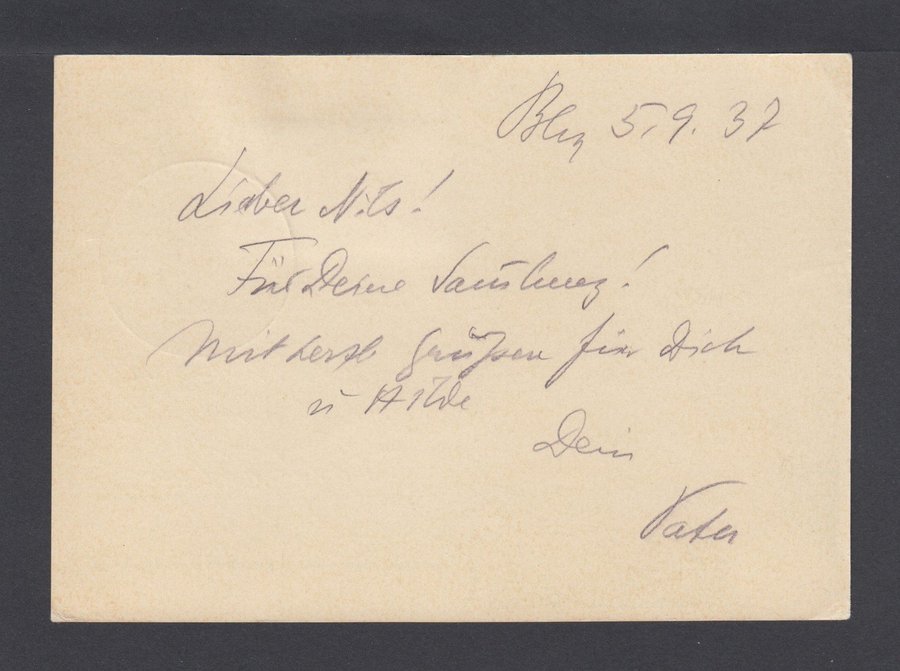 Bln 5.9.37
Lieber Nils!
Für Deine Samlung!
Mit herzl Grüßen für Dich
u Hilde
Dein
Vater